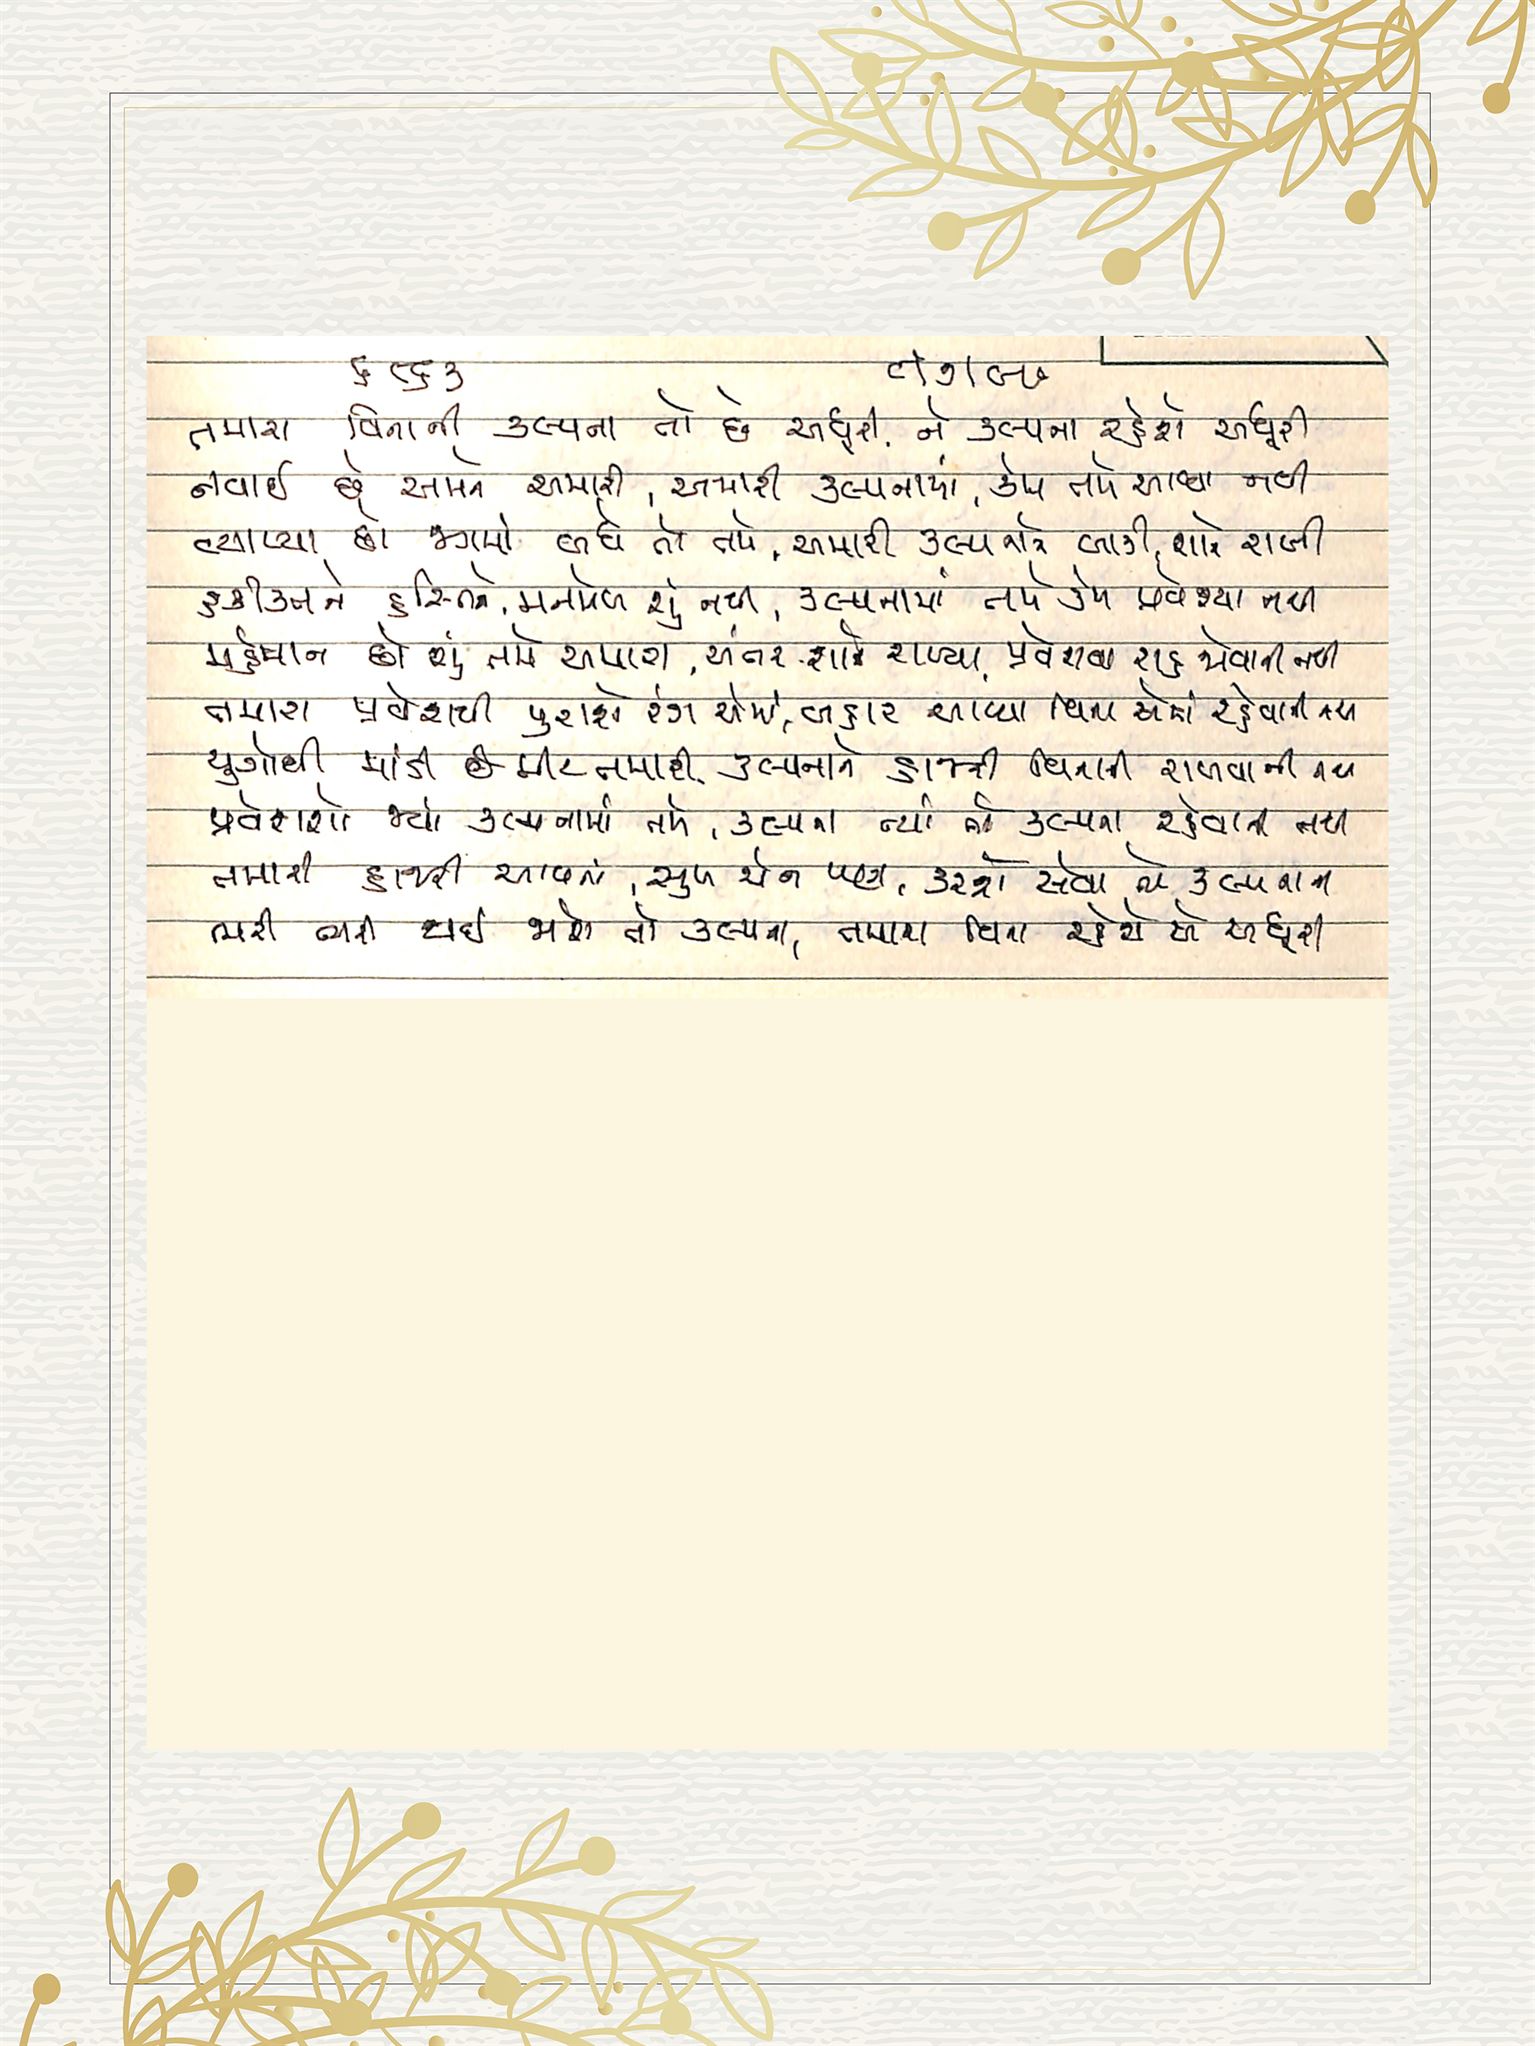 ૬૯૬૩
તમારા વિનાની કલ્પના તો છે અધૂરી, ને કલ્પના રહેશે અધૂરી
નવાઈ છે અમને અમારી, અમારી કલ્પનામાં, કેમ તમે આવ્યા નથી
વ્યાપ્યા છો જગમાં બધે તો તમે, અમારી કલ્પનાને બાકી, શાને રાખી
હકીકત ને હસ્તિને, મનમેળ શું નથી, કલ્પનામાં તમે કેમ પ્રવેશ્યા નથી
મહેમાન છો શું તમે અમારા, અંતર શાને રાખ્યા, પ્રવેશવા રાહ જોવાની નથી
તમારા પ્રવેશથી પુરાશે રંગ એમાં, બહાર આવ્યા વિના એમાં રહેવાની નથી
યુગોથી માંડી છે મીટ તમારી, કલ્પનાને હાજરી વિનાની રાખવાની નથી
પ્રવેશશો જ્યાં કલ્પનામાં તમે, કલ્પના ત્યાં કલ્પના રહેવાની નથી
તમારી હાજરી આપતાં, સુખ ચેન પણ, કરશો સેવા કલ્પનાને
ભરી ભરી થઈ જાશે તો કલ્પના, તમારા વિના રહેશે એ અધૂરી